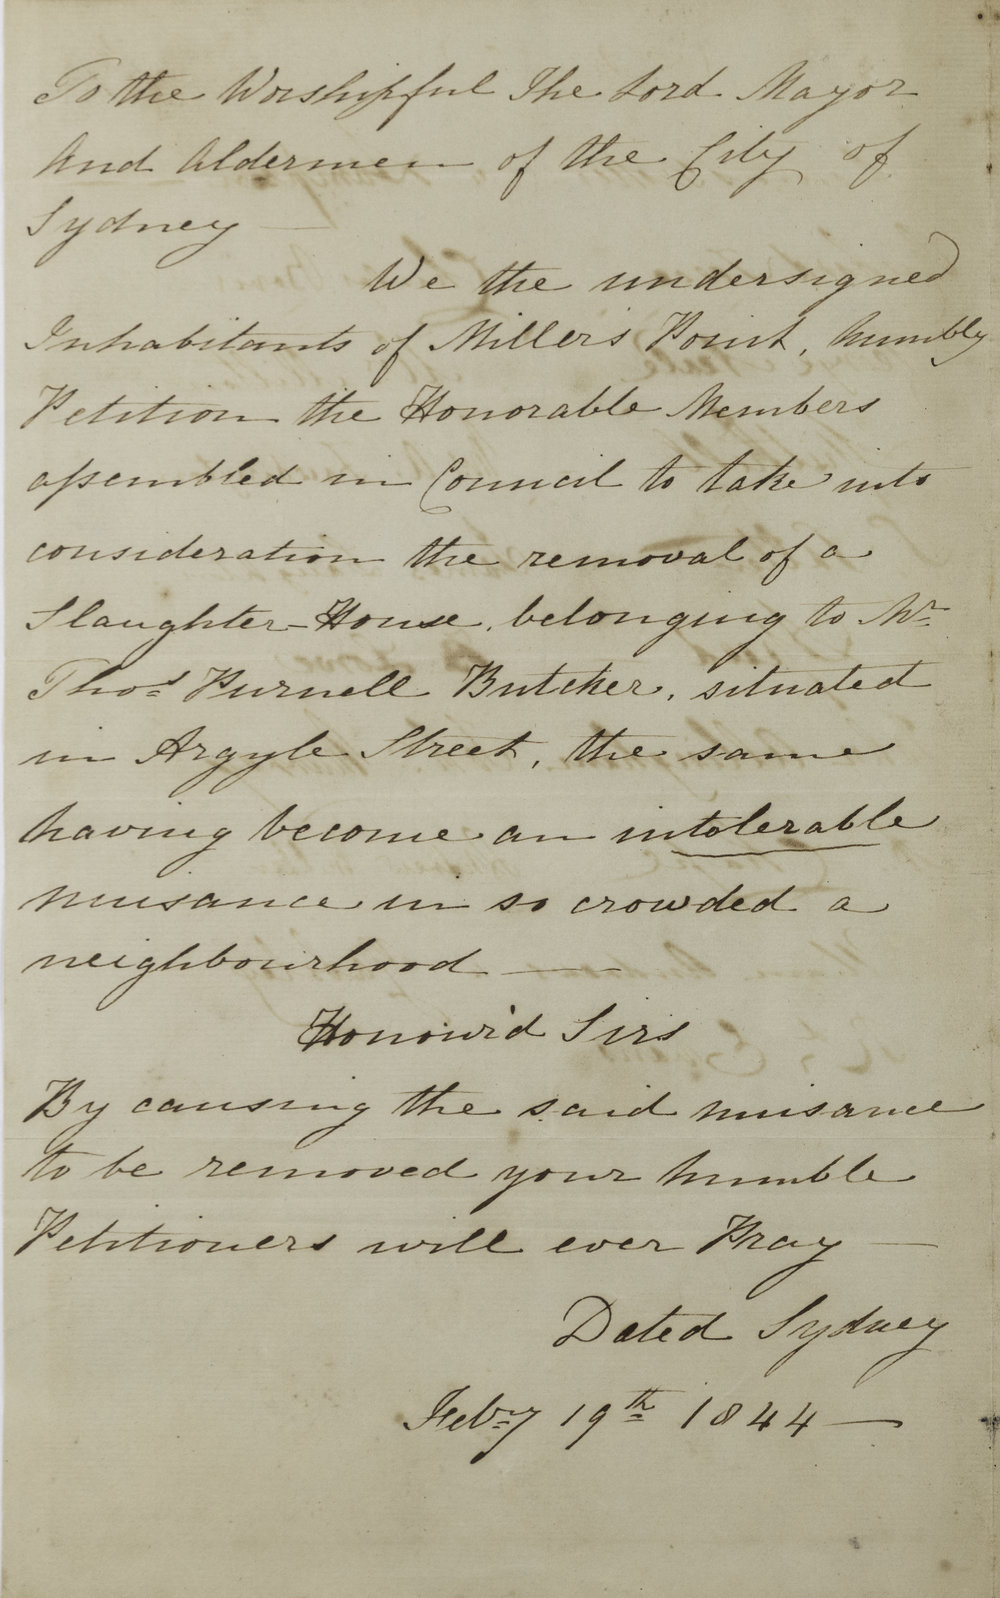 To the Worshipful The Lord Mayor
And Aldermen of the City of
Sydney —
We the undersigned
Inhabitants of Millers Point, humbly
Petition the Honorable Members
assembled in Council to take into
consideration the removal of a
Slaughter-House, belonging to Mr
Thos Purnell Butcher, situated
in Argyle Street, the same
having become an intolerable
nuisance in so crowded a
neighbourhood —
Honour'd Sirs
By causing the said nuisance
to be removed your humble
Petitioners will ever Pray —
Dated Sydney
Feby 19th 1844 —